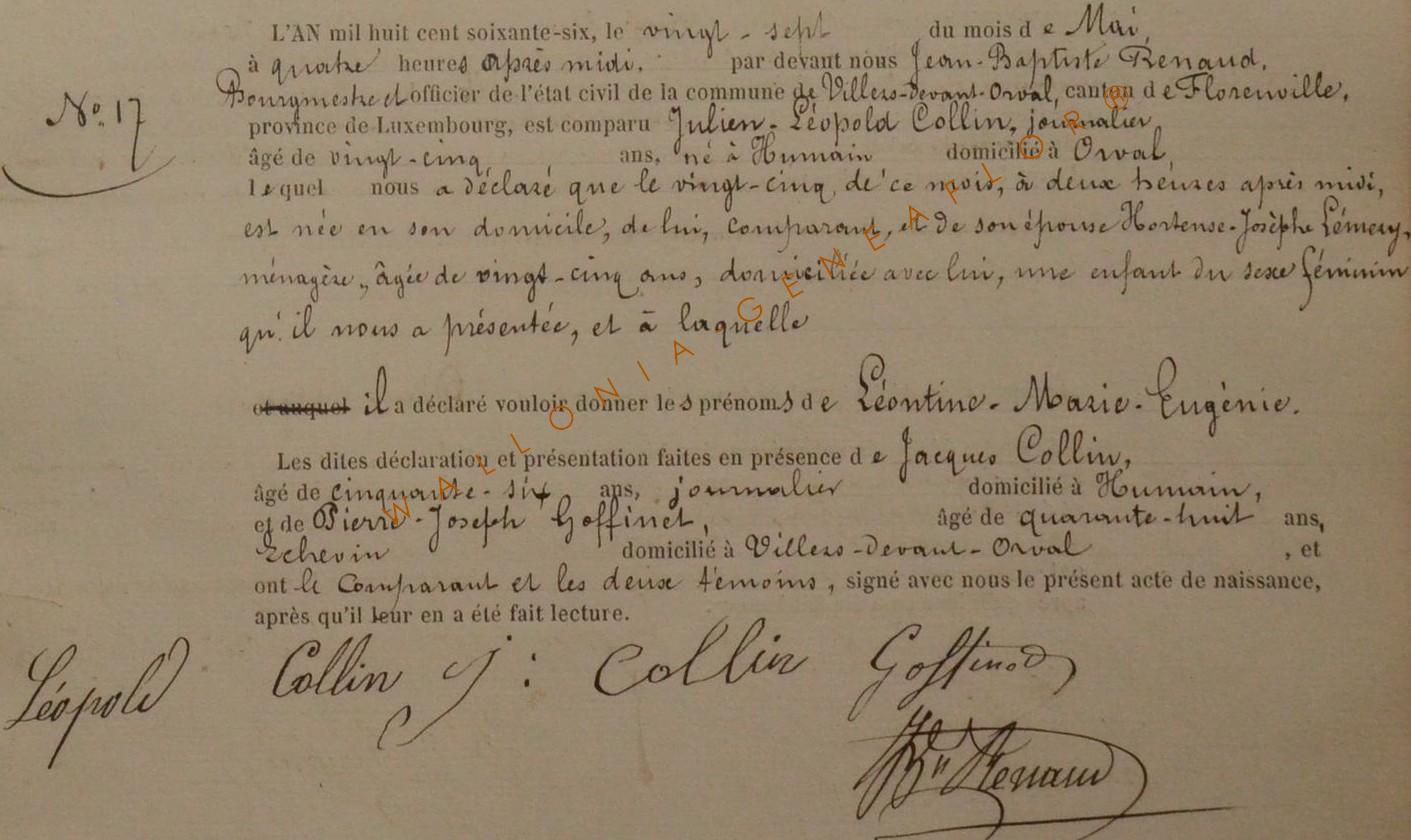 L'AN mil huit cent soixante-six, le vingt-sept du mois de Mai,
à quatre heures après midi. par devant nous Jean-Baptiste Renaud,
Bourgmestre et officier de l'état civil de la commune de Villers-devant-Orval, canton de Florenville,
N° 17
province de Luxembourg, est comparu Julien-Léopold Collin, journalier,
âgé de vingt-cinq ans, né à Humain domicilié à Orval,
lequel nous a déclaré que le vingt-cinq de ce mois, à deux heures après midi,
est née en son domicile, de lui, comparant, et de son épouse Hortense-Josèphe Lémery,
ménagère, âgée de vingt-cinq ans, domiciliée avec lui, une enfant du sexe féminin
qu'il nous a présentée, et à laquelle
et auquel il a déclaré vouloir donner les prénoms de Léontine-Marie-Eugènie.
Les dites déclaration et présentation faites en présence de Jacques Collin,
âgé de cinquante-six ans, journalier domicilié à Humain,
et de Pierre-Joseph Goffinet, âgé de quarante-huit ans,
Echevin domicilié à Villers-devant-Orval , et
ont le Comparant et les deux témoins, signé avec nous le présent acte de naissance,
après qu'il leur en a été fait lecture.
Léopold Collin J: Collin Goffinet
Renaud
WALLONIA GENEAPI ORG